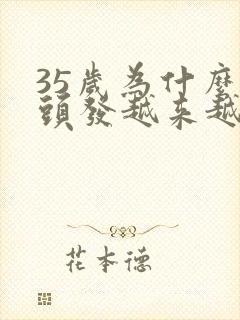 35歲為什麼
頭發越来越
花本德